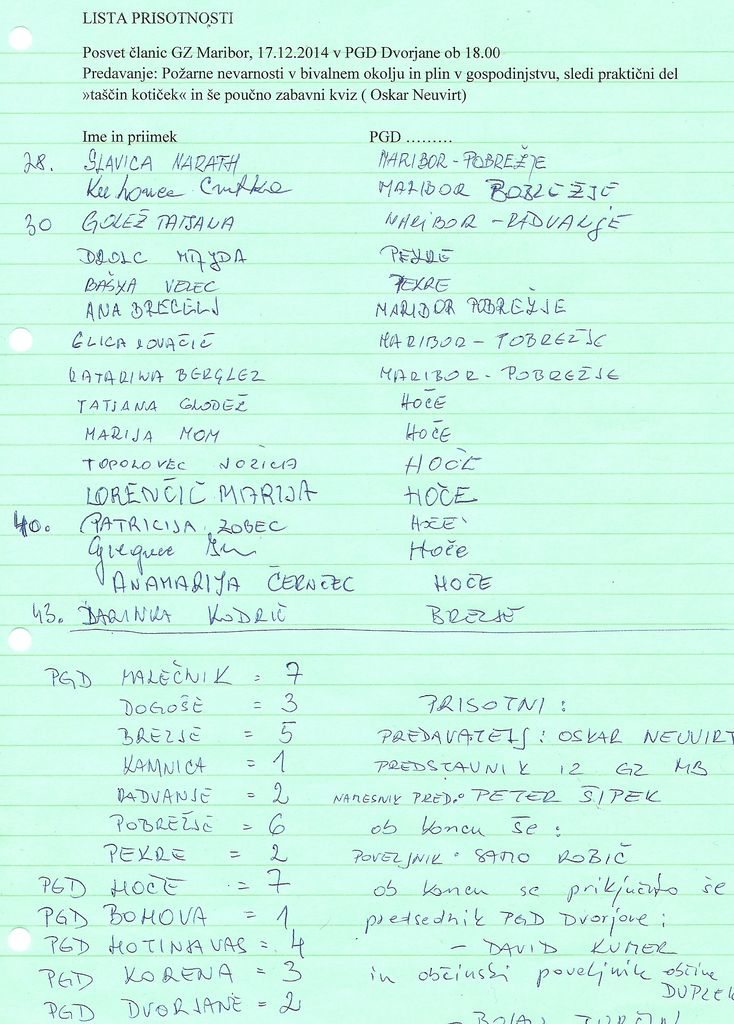 LISTA PRISOTNOSTI
Posvet članic GZ Maribor, 17.12.2014 v PGD Dvorjane ob 18.00
Predavanje: Požarne nevarnosti v bivalnem okolju in plin v gospodinjstvu, sledi praktični del
»taščin kotiček« in še poučno zabavni kviz ( Oskar Neuvirt)
Ime in priimek PGD .........
28. SLAVICA NARATH MARIBOR - POBREŽJE
MARIBOR POBREŽJE
30 GOLEŽ TATJANA MARIBOR - RADVANJE
DROLC MAJDA PEKRE
BAŠKA VELEC PEKRE
ANA BREGELJ MARIBOR POBREŽJE
ELICA KOVAČIČ MARIBOR - POBREŽJE
KATARINA BERGLEZ MARIBOR - POBREŽJE
TATJANA GLODEŽ HOČE
MARIJA MOM HOČE
TOPOLOVEC JOŽICA HOČE
LORENČIČ MARIJA HOČE
40. PATRICIJA ZOBEC HOČE
Hoče
ANAMARIJA ČERNČEC HOČE
43. DARINKA KODRIČ BREZJE
PGD MALEČNIK = 7
DOGOŠE = 3 PRISOTNI :
BREZJE = 5 PREDAVATELJ : OSKAR NEUVIRT
KAMNICA = 1 PREDSTAVNIK IZ GZ MB
RADVANJE = 2 NAMESNIK PRED. PETER ŠIPEK
POBREŽJE = 6 ob koncu še :
PEKRE = 2 POVELJNIK : SAMO ROBIČ
PGD HOČE = 7 ob koncu se priključita še
PGD BOHOVA = 1 predsednik PGD Dvorjane :
PGD HOTINJA VAS = 4 - DAVID KUMER
PGD KORENA = 3 in občinski poveljnik občine DUPLEK
PGD DVORJANE = 2
- BOJAN